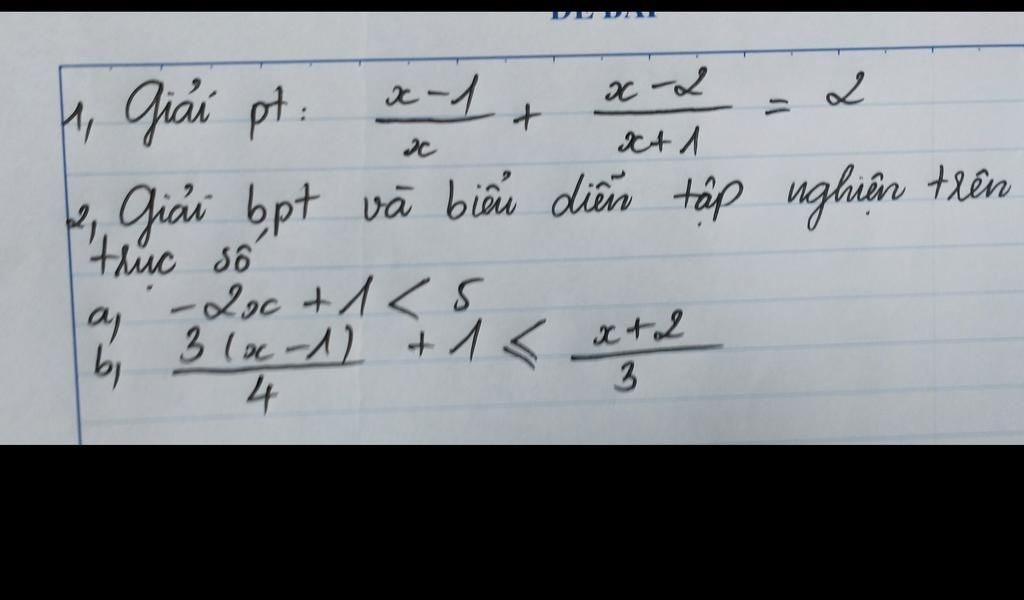 ĐỀ BÀI
1, Giải pt: \frac{x-1}{x} + \frac{x-2}{x+1} = 2
2, Giải bpt và biểu diễn tập nghiện trên
trục số
a, -2x + 1 < 5
b, \frac{3(x-1)}{4} + 1 ≤ \frac{x+2}{3}